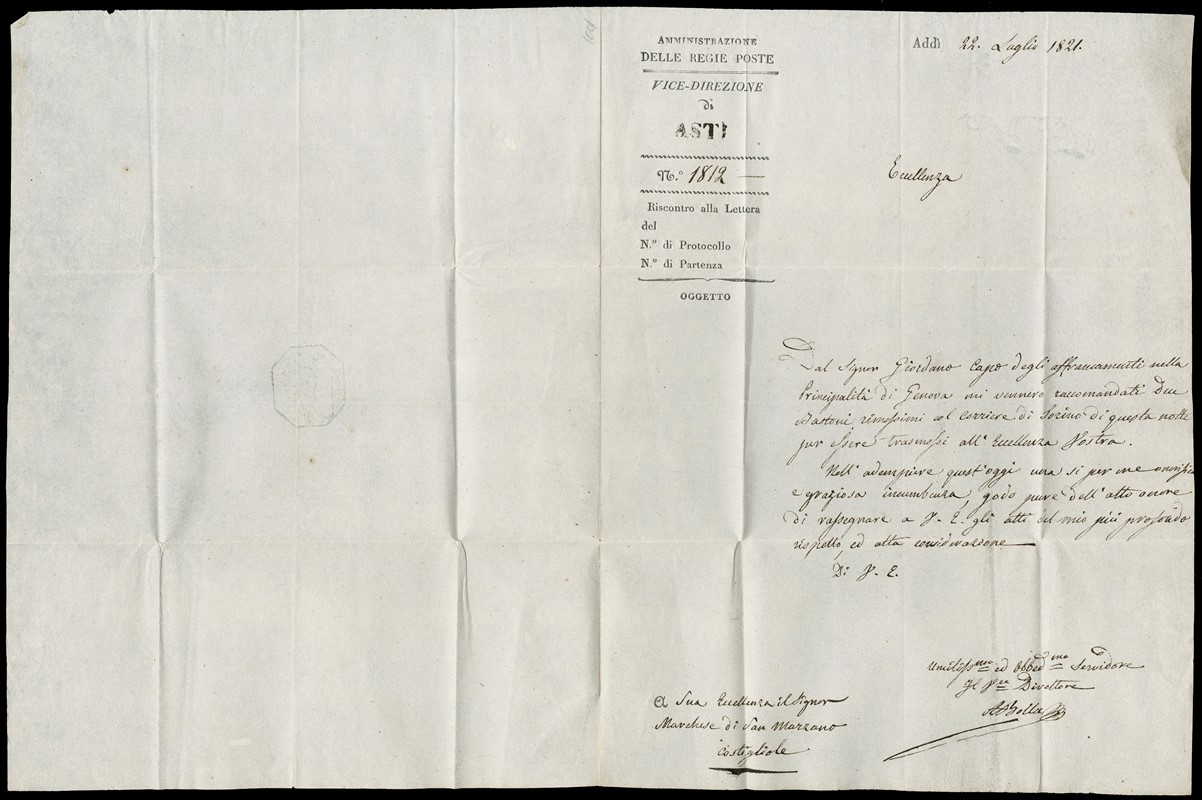 AMMINISTRAZIONE
DELLE REGIE POSTE
VICE-DIREZIONE
di
ASTI
N.º 1812 —
Riscontro alla Lettera
del
N.º di Protocollo
N.º di Partenza
OGGETTO
Addì 22. Luglio 1821.
Eccellenza
Dal Signor Giordano Capo degli affrancamenti nella
Principalità di Genova mi vennero raccomandati Due
Bastoni rimessimi col Corriere di Torino di questa notte
per essere trasmessi all' Eccellenza Vostra.
Nell' adempiere quest'oggi una si per me onorifica
e graziosa incumbenza, godo pure dell' alto onore
di rassegnare a V. E. gli atti del mio più profondo
rispetto, ed alta considerazione
Di V. E.
Umilissmo ed Obbedmo Servidore
Il Vce Direttore
A Sua Eccellenza il Signor
Marchese di San Marzano
Costigliole